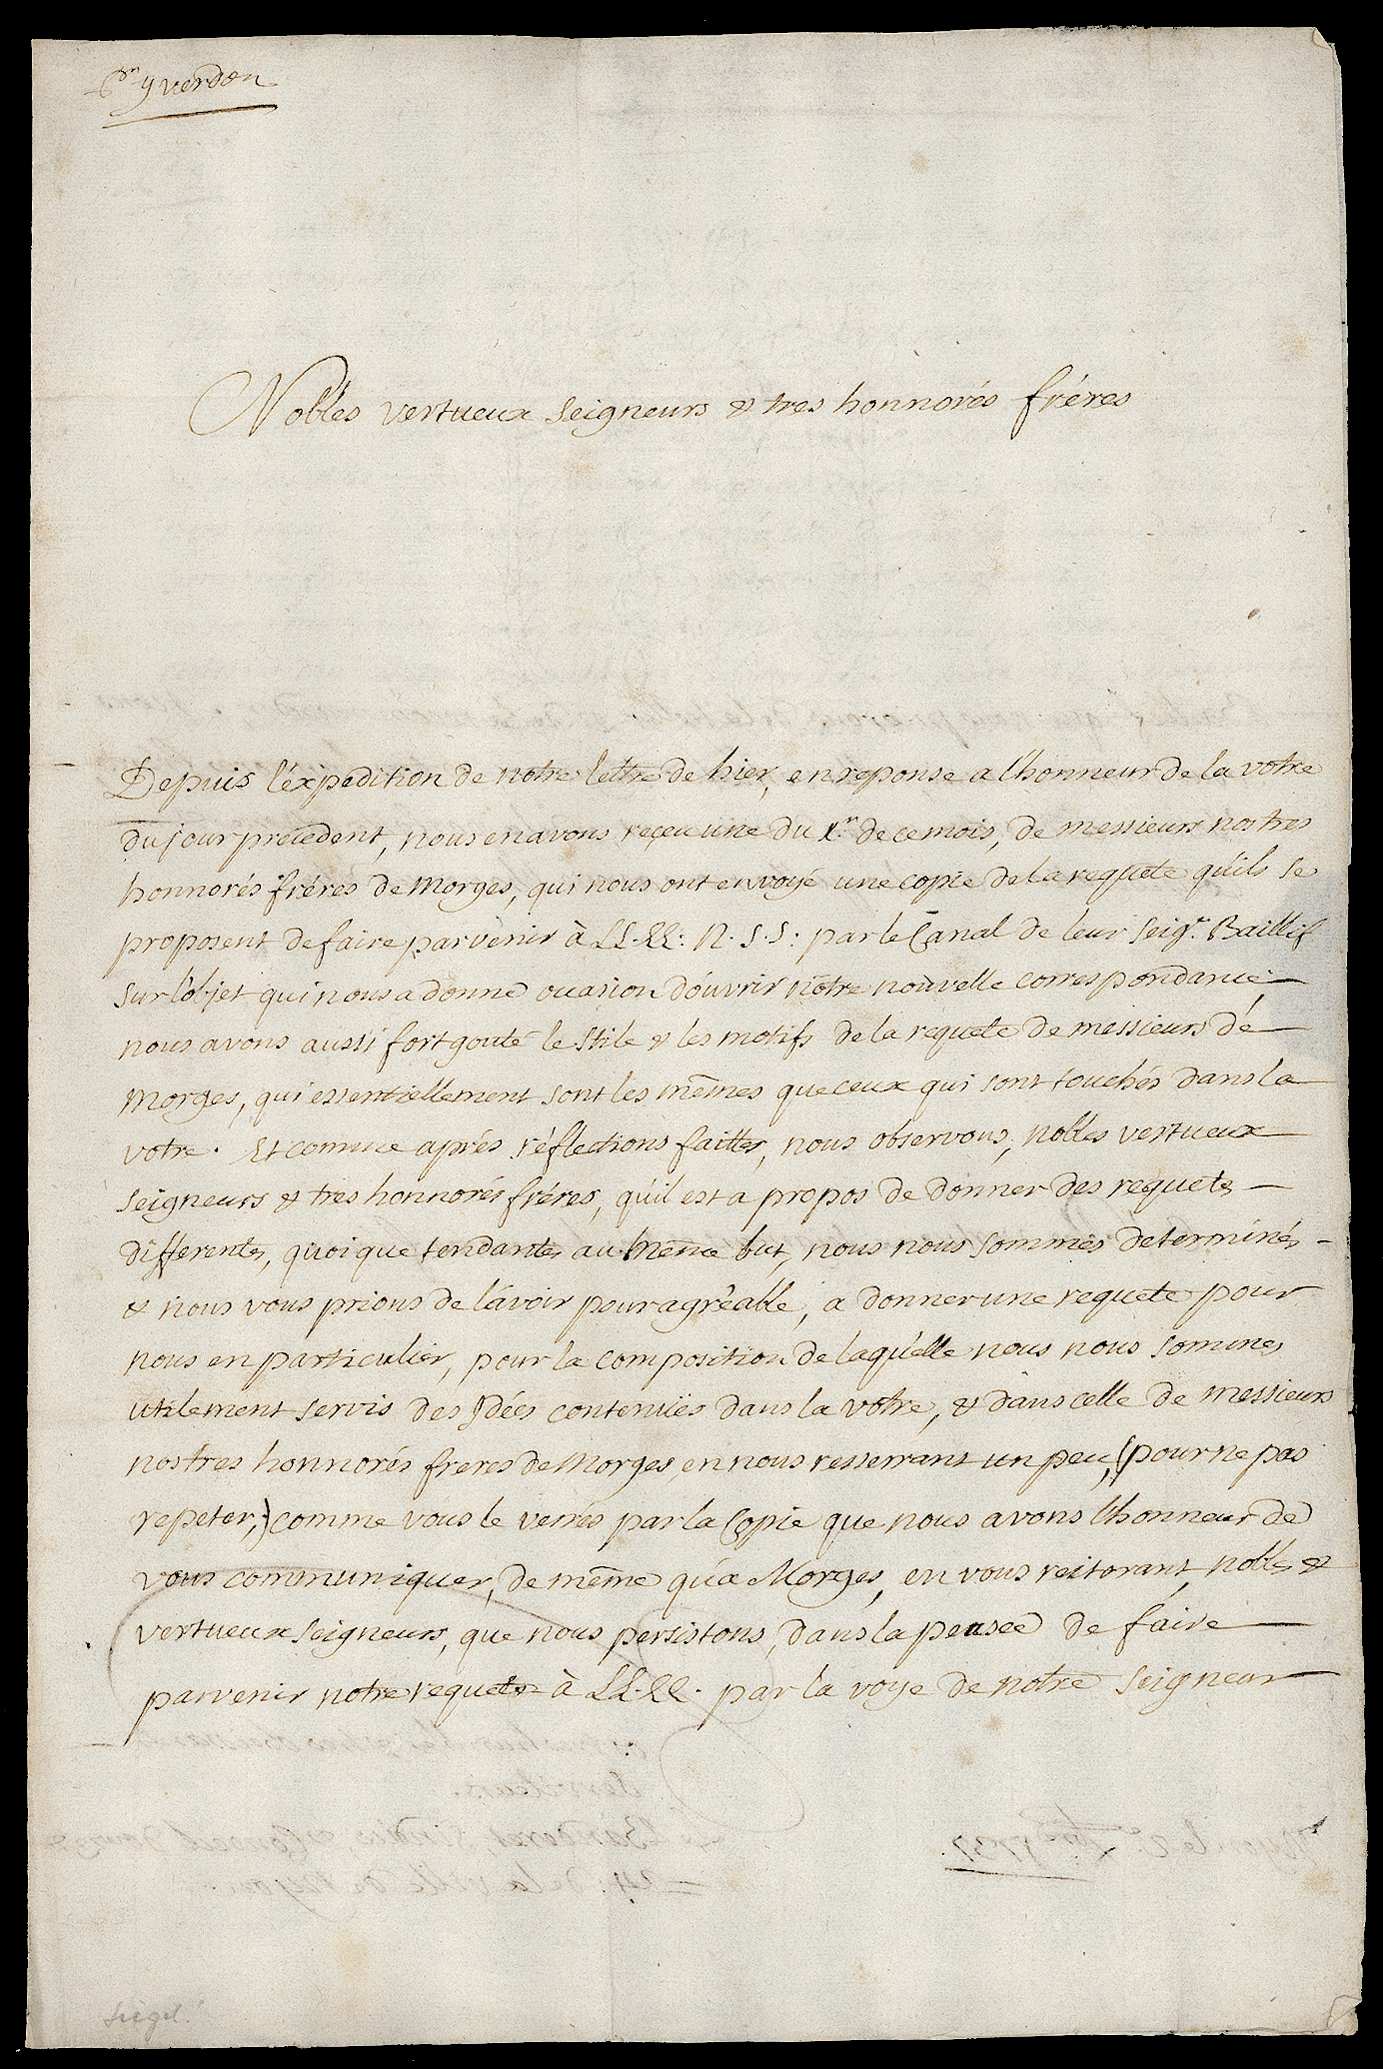 Yverdon
Nobles vertueux seigneurs & tres honnorés fréres
Depuis l'éxpedition de notre lettre de hier, en reponse a l'honneur de la votre
du jour precedent, nous en avons reçeu une du 1.er de ce mois, de messieurs nos tres
honnorés fréres de Morges, qui nous ont envoyé une copie de la requete qu'ils se
proposent de faire parvenir à LL.EE: N.S.S: par le Canal de leur seig.r Baillif
sur l'objet qui nous a donné ocasion d'ouvrir nôtre nouvelle correspondance
nous avons aussi fort gouté le stile & les motifs de la requete de messieurs dé
Morges, qui essentiellement sont les mêmes que ceux qui sont touchés dans la
votre. Et comme aprés réflections faittes, nous observons, nobles vertueux
seigneurs & tres honnorés fréres, qu'il est a propos de donner des requetes
differentes, quoi que tendantes au même but, nous nous sommes determinés
& nous vous prions de l'avoir pour agréable, a donner une requete pour
nous en particulier, pour la composition de laquelle nous nous sommes
utilement servis des Idées contenuës dans la vôtre, & dans celle de messieurs
nos tres honnorés freres de Morges, en nous resserrant un peu, (pour ne pas
repeter,) comme vous le verrés par la Copie que nous avons l'honneur de
vous communiquer, de même qu'a Morges, en vous reiterant, nobles &
vertueux seigneurs, que nous persistons, dans la pensée de faire
parvenir notre requete à LL.EE. par la voye de notre seigneur
Siegel!